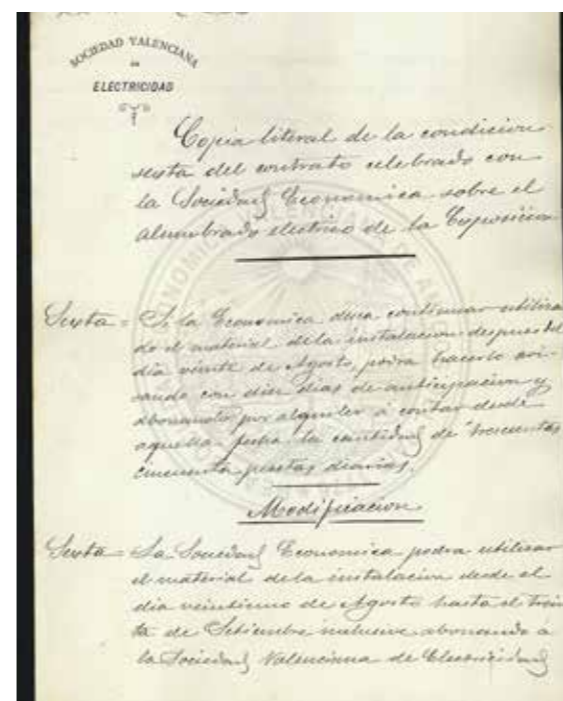 SOCIEDAD VALENCIANA
DE
ELECTRICIDAD
Copia literal de la condicion
sexta del contrato celebrado con
la Sociedad Economica sobre el
alumbrado electrico de la Exposicion
Sexta = Si la Economica desea continuar utilizan
do el material de la instalacion despues del
dia veinte de Agosto, podra hacerlo avi-
sando con diez dias de anticipacion y
abonando por alquiler á contar desde
aquella fecha la cantidad de trescientas
cincuenta pesetas diarias.
Modificacion
Sexta = La Sociedad Economica podra utilizar
el material de la instalacion desde el
dia veintiuno de Agosto hasta el trein
ta de Setiembre inclusive abonando á
la Sociedad Valenciana de Electricidad